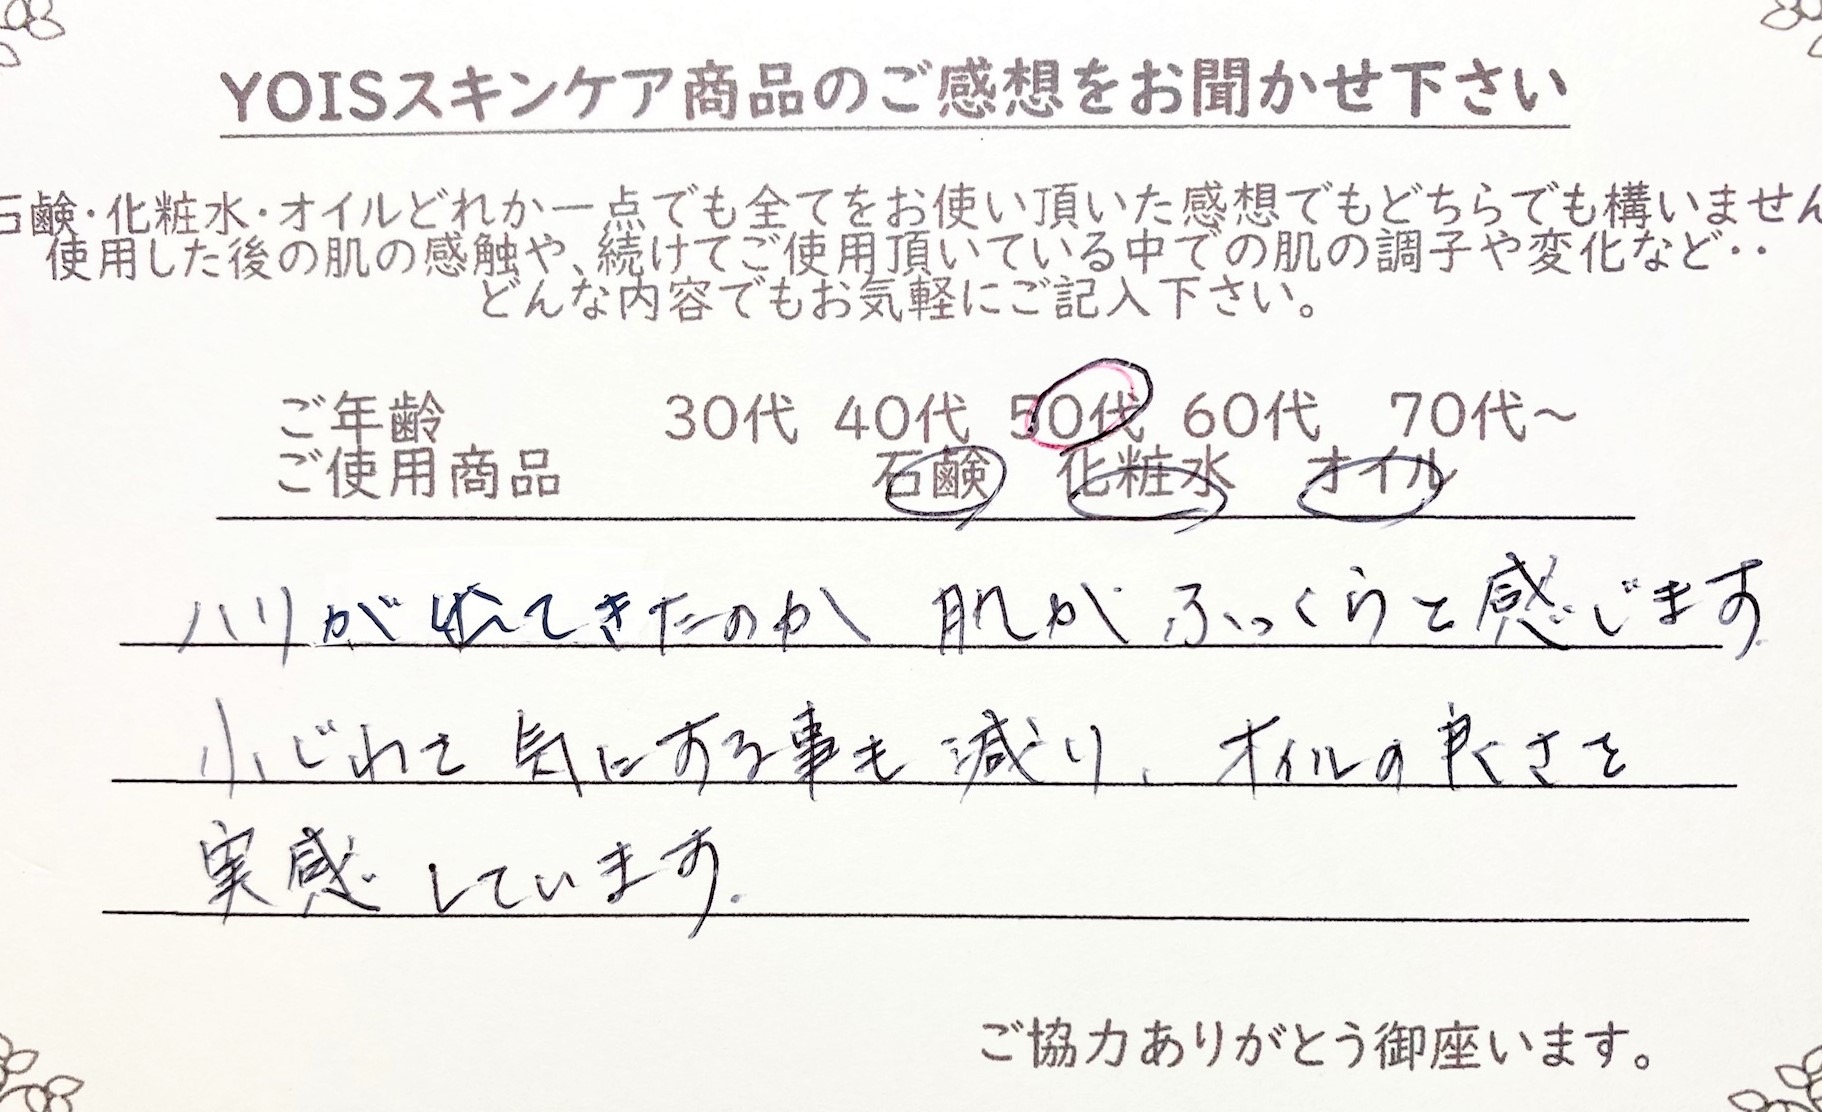 YOISスキンケア商品のご感想をお聞かせ下さい
石鹸・化粧水・オイルどれか一点でも全てをお使い頂いた感想でもどちらでも構いません
使用した後の肌の感触や、続けてご使用頂いている中での肌の調子や変化など‥
どんな内容でもお気軽にご記入下さい。
ご年齢 30代 40代 50代 60代 70代～
ご使用商品 石鹸 化粧水 オイル
ハリが出てきたのか 肌がふっくらと感じます
小じわを気にする事も減り、オイルの良さを
実感しています.
ご協力ありがとう御座います。